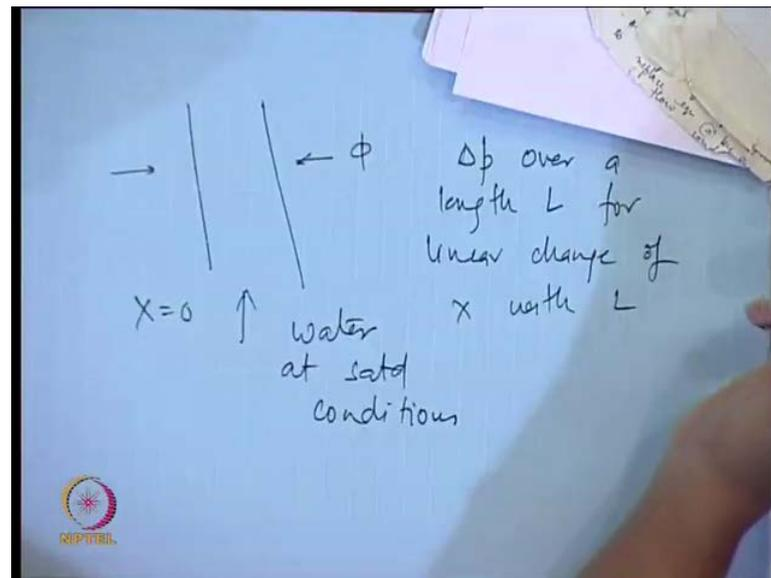 → ← ϕ
Δp over a
length L for
linear change of
x with L
X=0 ↑ water
at satd
conditions
NPTEL